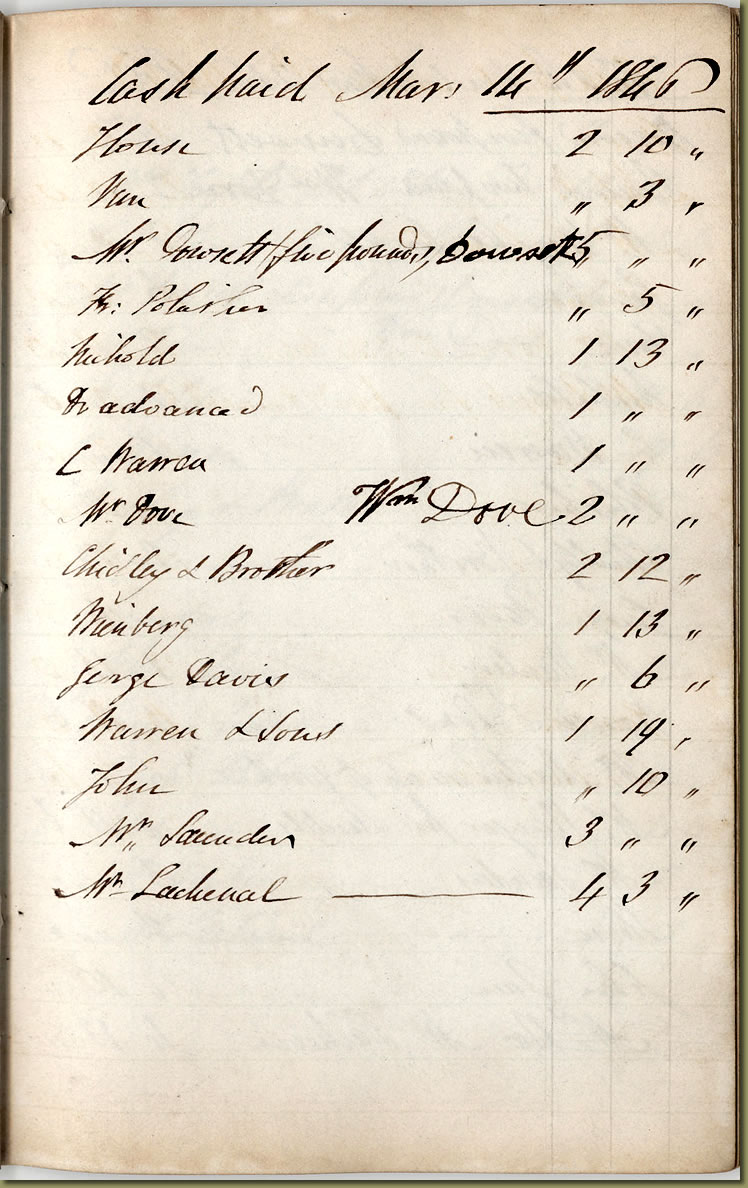 Cash paid Mar: 14" 1846
House 2 10 "
Van " 3 "
Mr. Dowsett five pounds, Dowsett 5 " "
Fr: Polisher " 5 "
Nibold 1 13 "
Do advanced 1 " "
C Warren 1 " "
Mr Dove Wm Dove 2 " "
Chidley & Brother 2 12 "
Weinberg 1 13 "
Gerge Davis " 6 "
Warren & Sons 1 19 "
John " 10 "
Mr Saunders 3 " "
Mr Lachenal — 4 3 "